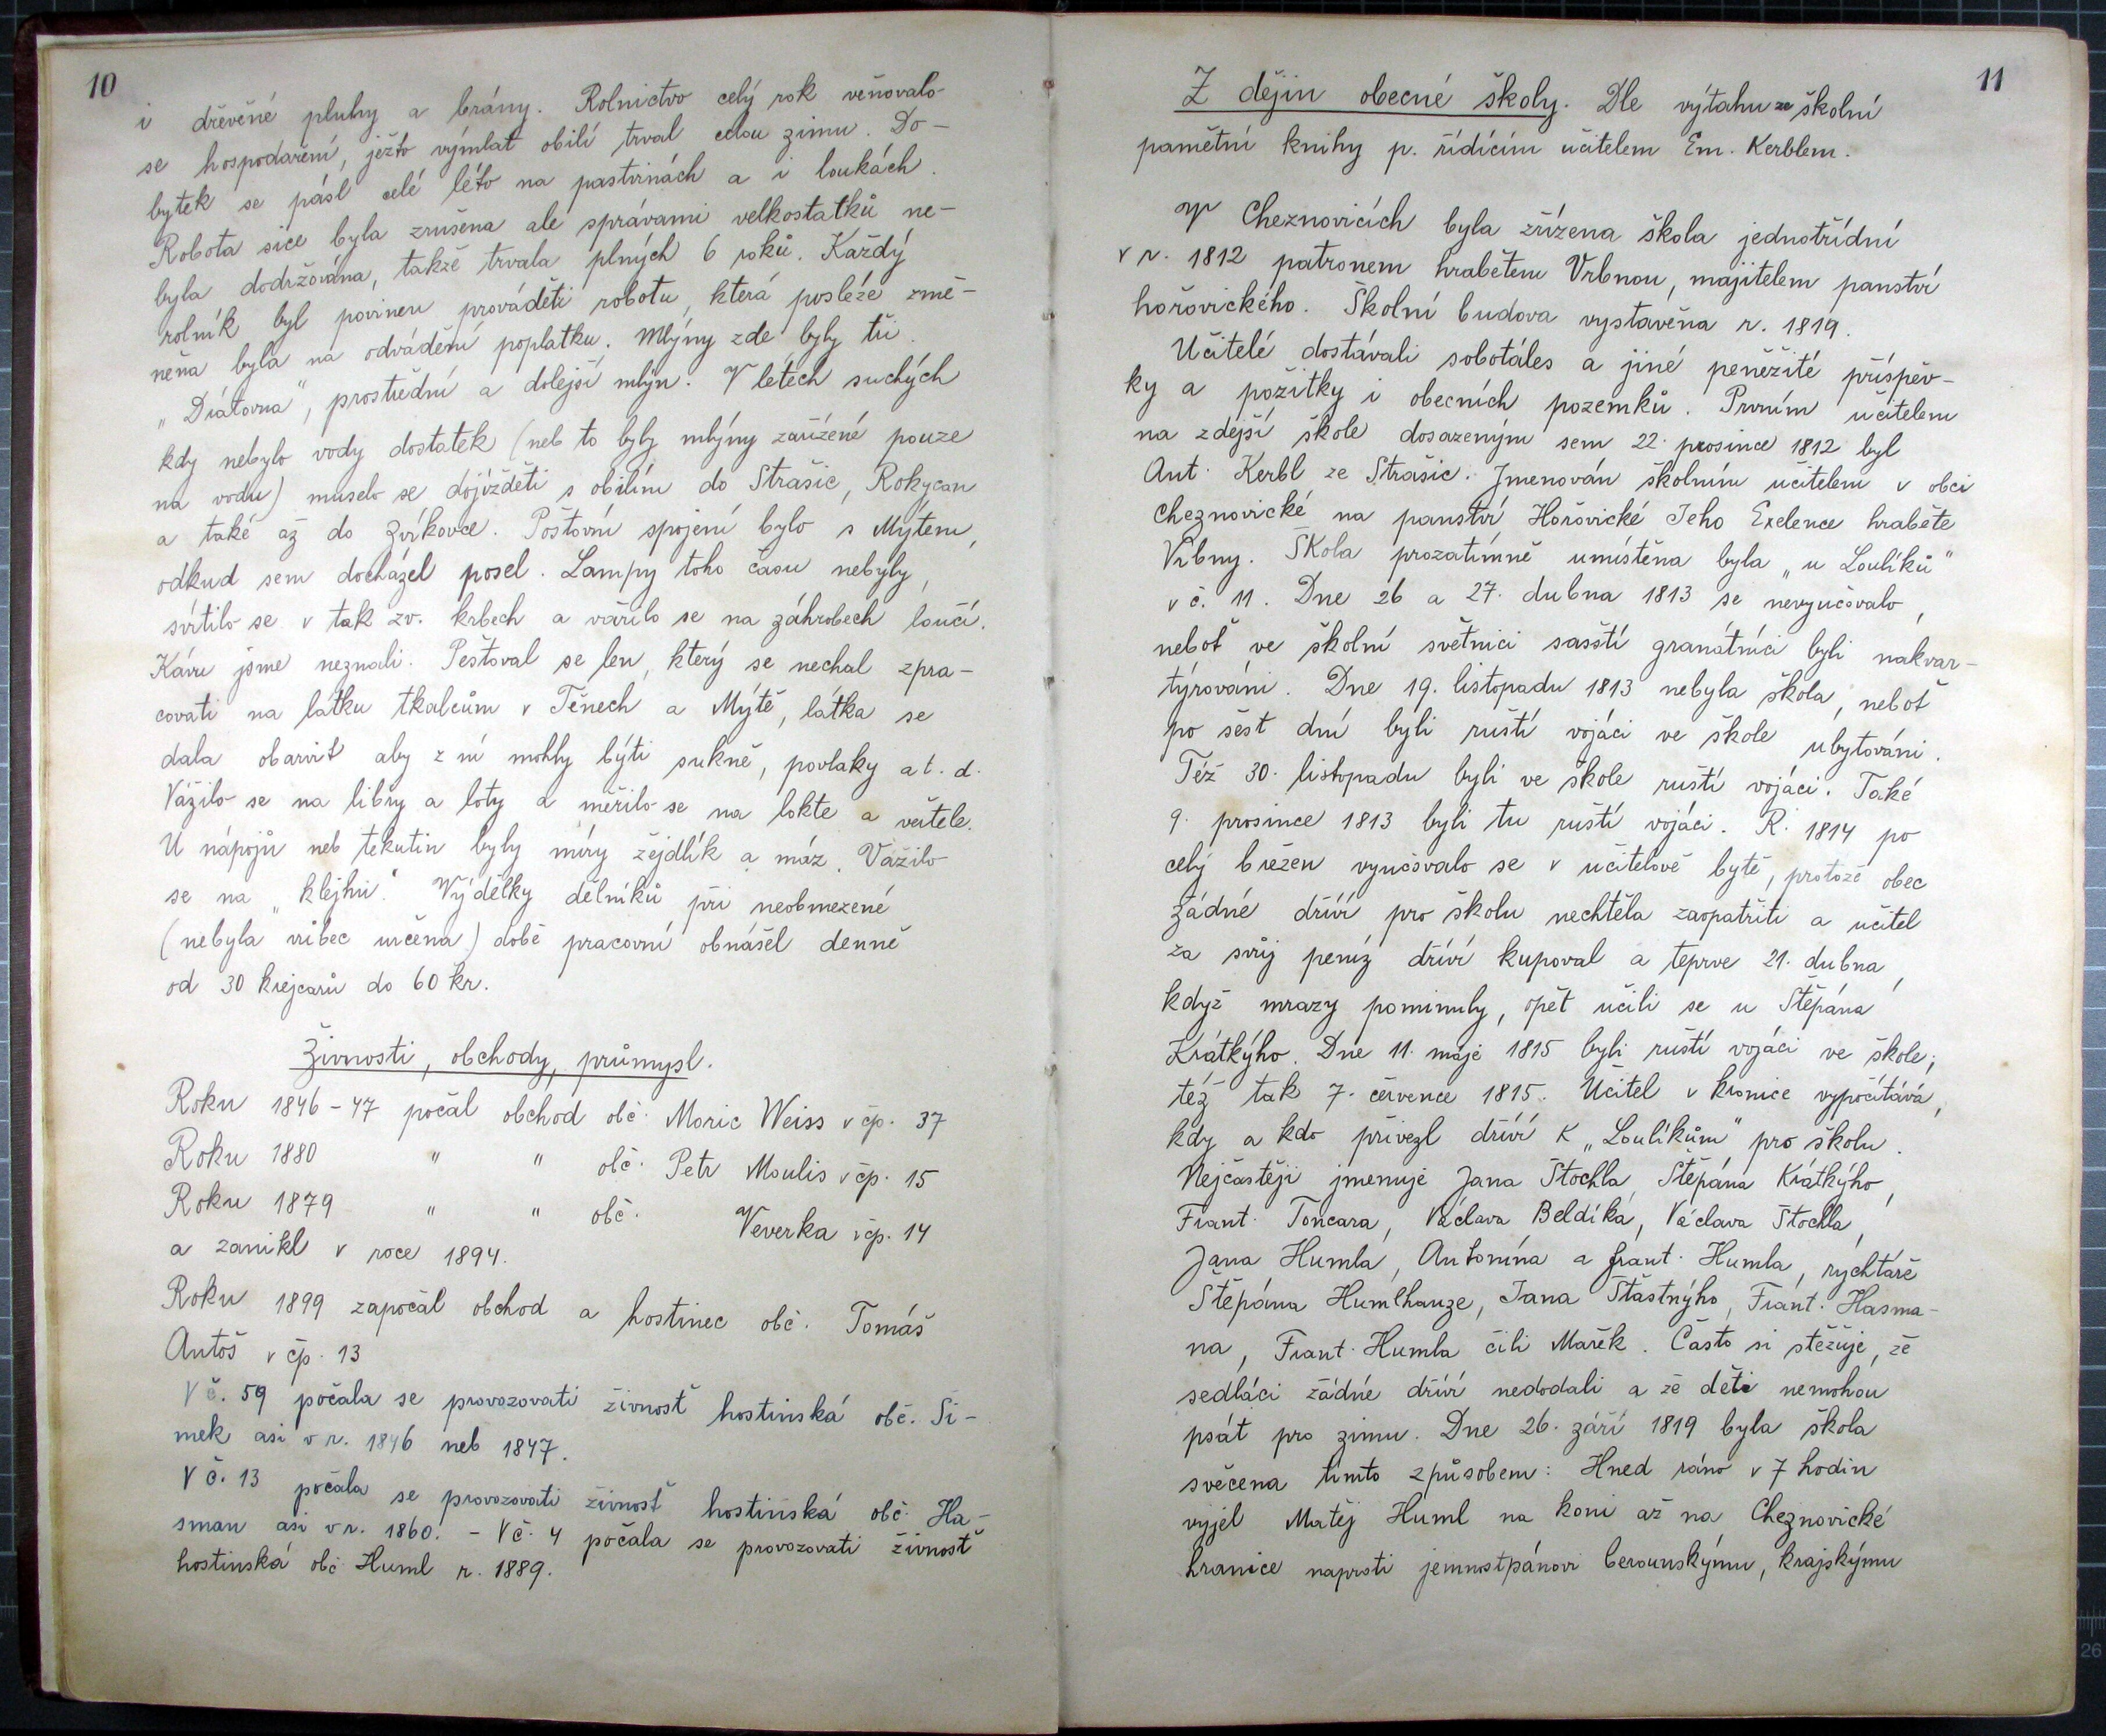 10
i dřevěné pluhy a brány. Rolnictvo celý rok věňovalo
se hospodaření, ježto výmlat obilí trval celou zimu. Do-
bytek se pásl celé léto na pastvinách a i loukách.
Robota sice byla zrušena ale správami velkostatků ne-
byla dodržována, takže trvala plných 6 roků. Každý
rolník byl povinen prováděti robotu, která posléze změ-
něna byla na odvádění poplatku. Mlýny zde byly tři.
„Drátovna", prostřední a dolejší mlýn. V létech suchých
kdy nebylo vody dostatek (neb to byly mlýny zařízené pouze
na vodu) muselo se dojížděti s obilím do Strašic, Rokycan
a také až do Zvíkovce. Poštovní spojení bylo s Mýtem,
odkud sem docházel posel. Lampy toho času nebyly,
svítilo se v tak zv. krbech a vařilo se na záhrobech loučí.
Kávu jsme neznali. Pěstoval se len, který se nechal zpra-
covati na látku tkalcům v Těnech a Mýtě, látka se
dala obarvit aby z ní mohly býti sukně, povlaky a t. d.
Vážilo se na libry a loty a měřilo se na lokte a věrtele.
U nápojů neb tekutin byly míry žejdlík a máz. Vážilo
se na „klejhů". Výdělky dělníků při neobmezené
(nebyla vůbec určena) době pracovní obnášel denně
od 30 krejcarů do 60 kr.
Živnosti, obchody, průmysl.
Roku 1846-47 počal obchod obč. Moric Weiss v čp. 37
Roku 1880 " " obč. Petr Moulis v čp. 15
Roku 1879 " " obč. Veverka v čp. 14
a zanikl v roce 1894.
Roku 1899 započal obchod a hostinec obč. Tomáš
Autoš v čp. 13
V č. 59 počala se provozovati živnosť hostinská obč. Ši-
mek asi v r. 1846 neb 1847.
V č. 13 počala se provozovati živnosť hostinská obč. Ha-
sman asi v r. 1860. - V č. 4 počala se provozovati živnosť
hostinská obč Huml r. 1889.
11
Z dějin obecné školy. Dle výtahu ze školní
pamětní knihy p. řídícím učitelem Em. Kerblem.
V Cheznovicích byla zřízena škola jednotřídní
v r. 1812 patronem hrabětem Vrbnou, majitelem panství
hořovického. Školní budova vystavěna r. 1819.
Učitelé dostávali sobotáles a jiné peněžité příspěv-
ky a požitky i obecních pozemků. Prvním učitelem
na zdejší škole dosazeným sem 22. prosince 1812 byl
Ant. Kerbl ze Strašic. Jmenován školním učitelem v obci
Cheznovické na panství Hořovické Jeho Exelence hraběte
Vrbny. Škola prozatímně umístěna byla „u Loulíků"
v č. 11. Dne 26 a 27. dubna 1813 se nevyučovalo,
neboť ve školní světnici sasští granátníci byli nakvar-
týrováni. Dne 19. listopadu 1813 nebyla škola, neboť
po šest dní byli ruští vojáci ve škole ubytováni.
Též 30. listopadu byli ve škole ruští vojáci. Také
9. prosince 1813 byli tu ruští vojáci. R. 1814 po
celý březen vyučovalo se v učitelově bytě, protože obec
žádné dříví pro školu nechtěla zaopatřiti a učitel
za svůj peníz dříví kupoval a teprve 21. dubna,
když mrazy pominuly, opět učili se u Štěpána
Krátkýho. Dne 11. máje 1815 byli ruští vojáci ve škole;
též tak 7. července 1815. Učitel v kronice vypočítává,
kdy a kdo přivezl dříví k „Loulíkům" pro školu.
Nejčastěji jmenuje Jana Štochla, Štěpána Krátkýho,
Frant. Toncara, Václava Beldíka, Václava Štochla,
Jana Humla, Antonína a Frant. Humla, rychtáře
Štěpána Humlhauze, Jana Šťastnýho, Frant. Hasma-
na, Frant. Humla čili Mařek. Často si stěžuje, že
sedláci žádné dříví nedodali a že děti nemohou
psát pro zimu. Dne 26. září 1819 byla škola
svěcena tímto způsobem: Hned ráno v 7 hodin
vyjel Matěj Huml na koni až na Cheznovické
hranice naproti jemnostpánovi berounskýmu, krajskýmu
26